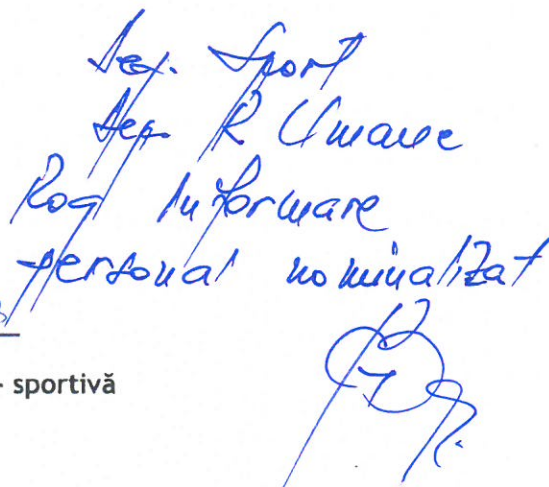 Dep. Sport
Dep. R Umane
Rog informare
personal nominalizat
- sportivă